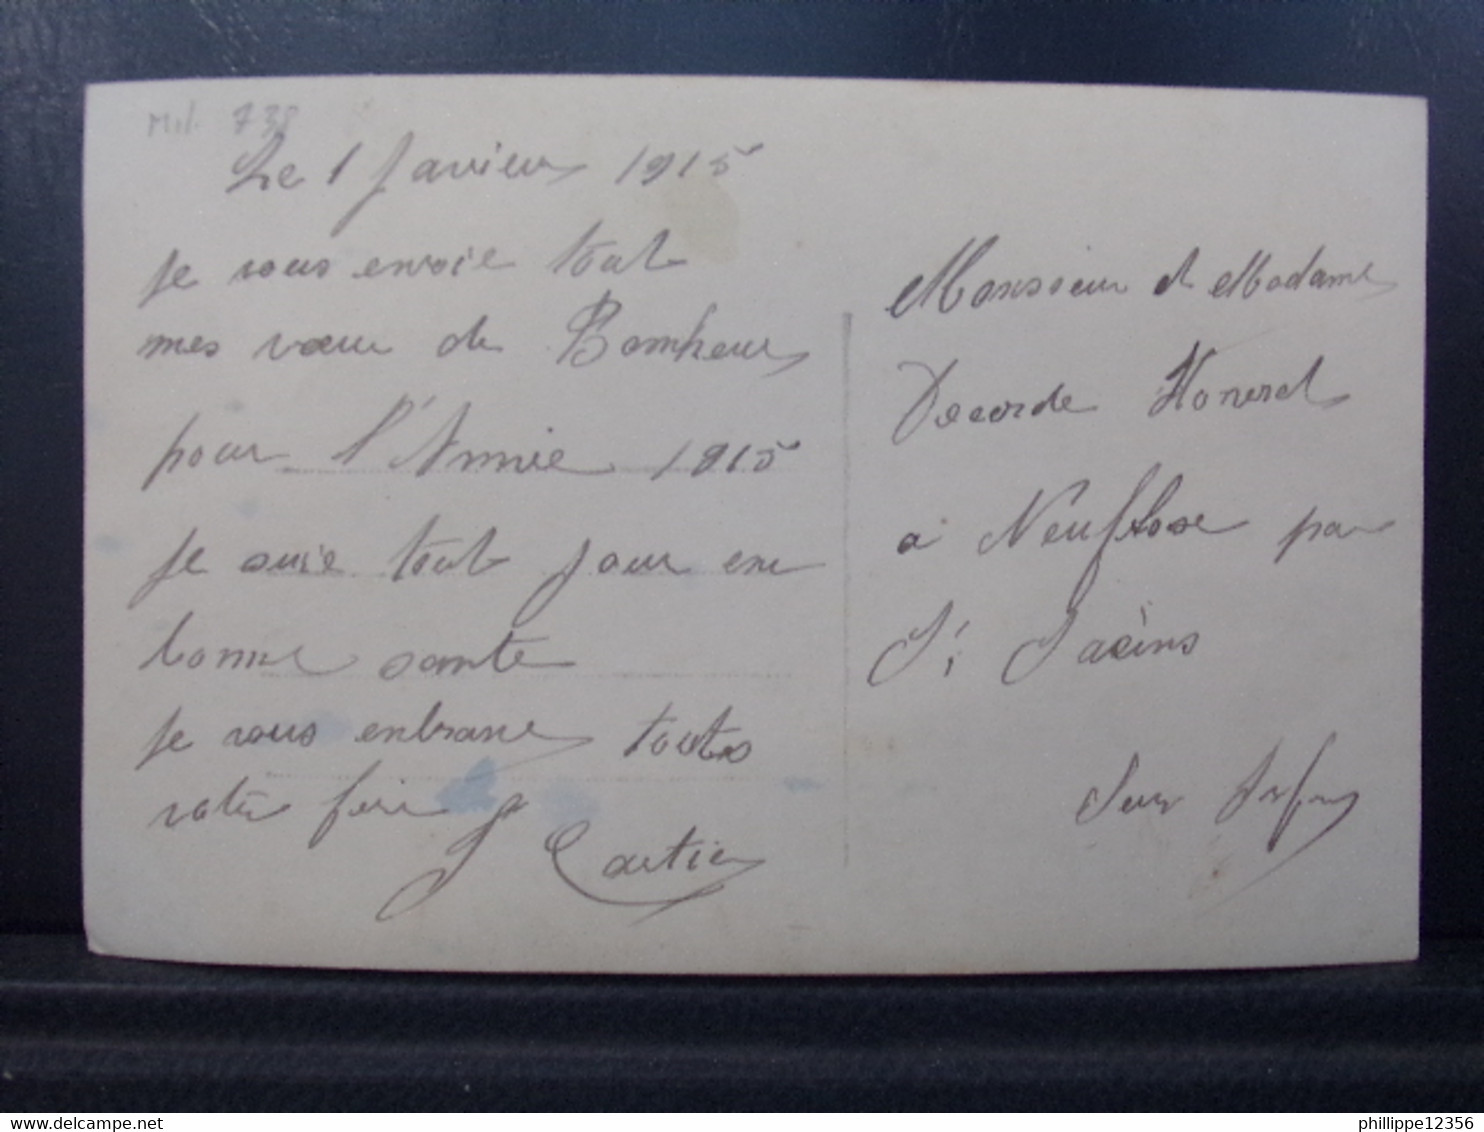 Mil. 738
Le 1 Janvier 1915
Je vous envoie tout
mes vœu de Bonheur
pour l'Année 1915
Je suis tout jour en
bonne santé
Je vous enbrane toutes
votre
J Cartier
Monsieur et Madame
Decorde Honoré
à Neufbosc par
St Saëns
Seine Infre
delcampe.net
philippe12356